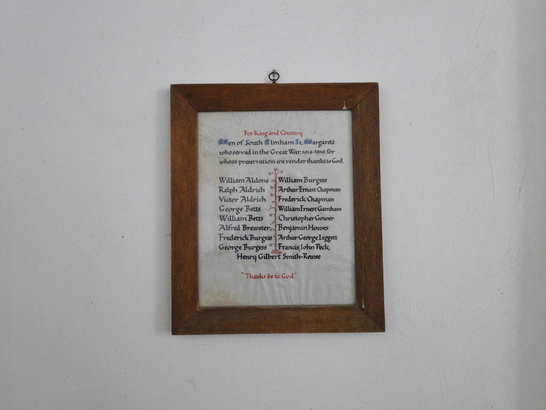 For King and Country
Men of South Elmham St. Margarets
who served in the Great War. 1914-1919, for
whose preservation we render thanks to God.
William Aldous William Burgess
Ralph Aldrich Arthur Ernest Chapman
Victor Aldrich Frederick Chapman
George Betts William Ernest Garnham
William Betts Christopher Gower
Alfred Brewster Benjamin Howes
Frederick Burgess Arthur George Leggett
George Burgess Francis John Peck
Henry Gilbert Smith-Rewse
"Thanks be to God"